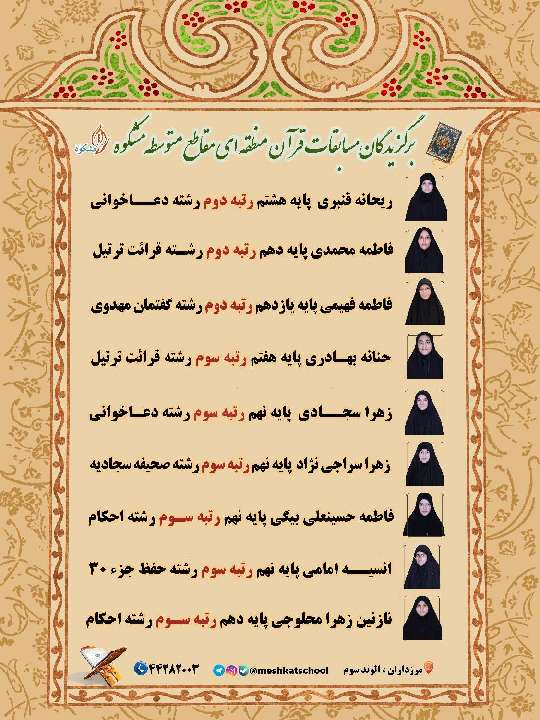 برگزیدگان مسابقات قرآن منطقه ای مقاطع متوسطه مشکوه
مشکوه
ریحانه قنبری پایه هشتم رتبه دوم رشته دعاخوانی
فاطمه محمدی پایه دهم رتبه دوم رشته قرائت ترتیل
فاطمه فهیمی پایه یازدهم رتبه دوم رشته گفتمان مهدوی
حنانه بهادری پایه هفتم رتبه سوم رشته قرائت ترتیل
زهرا سجادی پایه نهم رتبه سوم رشته دعاخوانی
زهرا سراجی نژاد پایه نهم رتبه سوم رشته صحیفه سجادیه
فاطمه حسینعلی بیگی پایه نهم رتبه سوم رشته احکام
انسیه امامی پایه نهم رتبه سوم رشته حفظ جزء ۳۰
نازنین زهرا محلوجی پایه دهم رتبه سوم رشته احکام
مرزداران ، الوند سوم @meshkatschool ۴۴۲۸۲۰۰۳